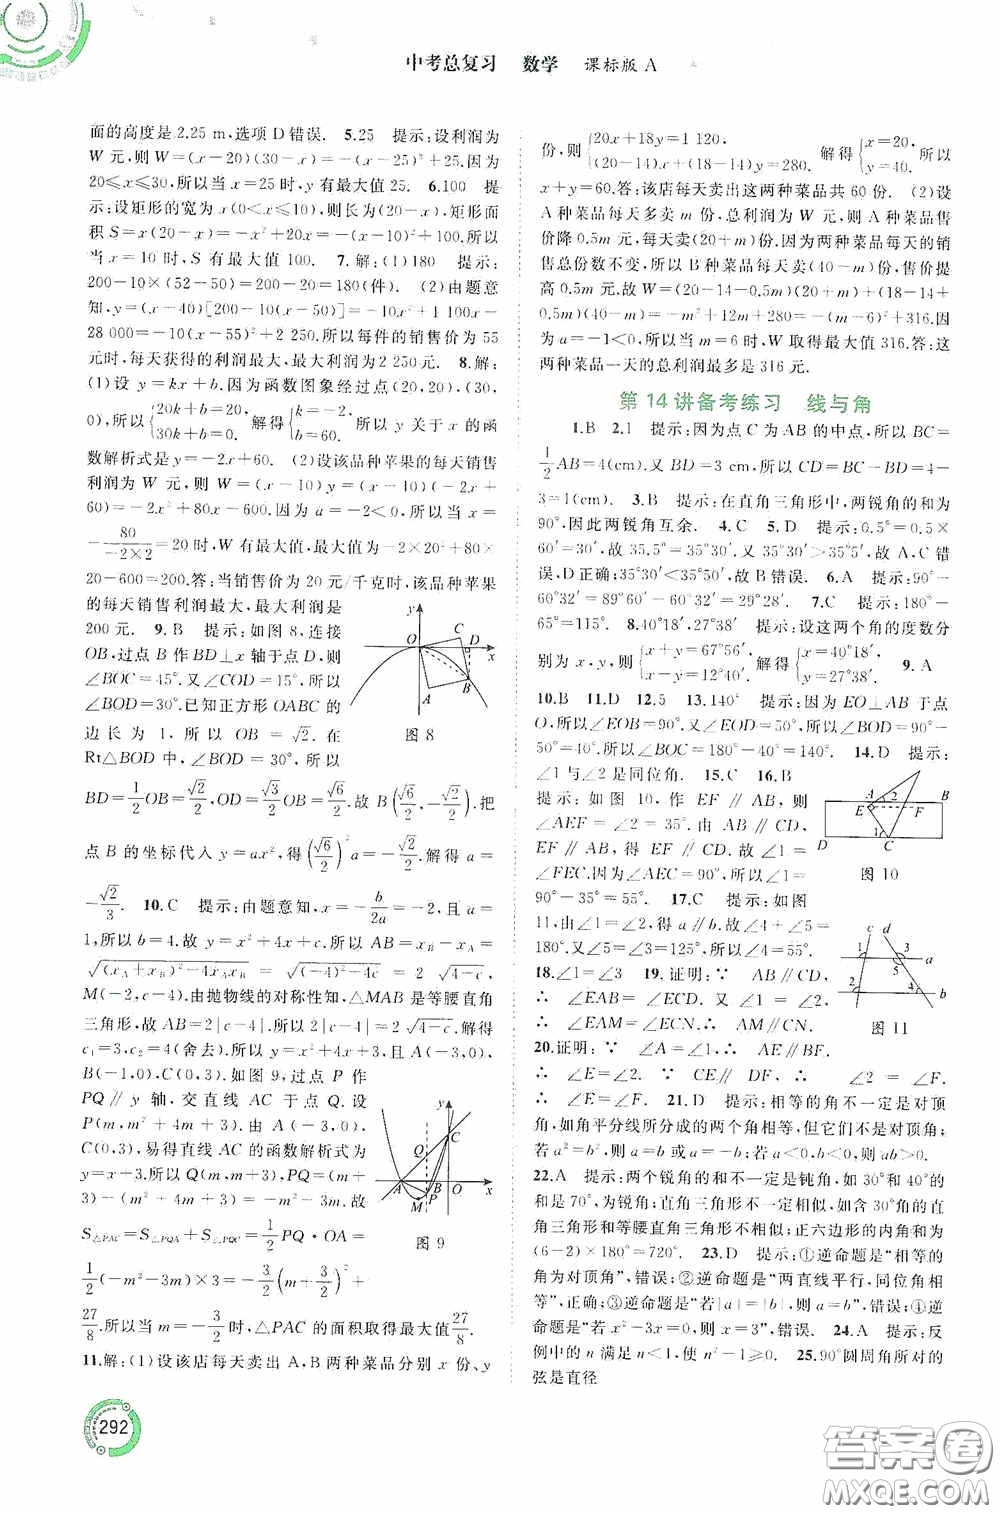 中考总复习 数学 课标版 A
面的高度是 2.25 m,选项 D 错误. 5.25 提示:设利润为
W 元,则 W=(x-20)(30-x)=-(x-25)²+25.因为
20≤x≤30,所以当 x=25 时,y 有最大值 25. 6.100 提
示:设矩形的宽为 x(0<x≤10),则长为(20-x),矩形面
积 S=x(20-x)=-x²+20x=-(x-10)²+100.所以
当 x=10 时,S 有最大值 100. 7.解:(1)180 提示:
200-10×(52-50)=200-20=180(件). (2)由题意
知,y=(x-40)[200-10(x-50)]=-10x²+1 100x-
28 000=-10(x-55)²+2 250.所以每件的销售价为 55
元时,每天获得的利润最大,最大利润为 2 250 元. 8.解:
(1)设 y=kx+b.因为函数图象经过点(20,20),(30,
0),所以{20k+b=20, 30k+b=0. 解得{k=-2, b=60. 所以 y 关于 x 的函
数解析式是 y=-2x+60. (2)设该品种苹果的每天销售
利润为 W 元,则 W=(x-10)y=(x-10)(-2x+
60)=-2x²+80x-600.因为 a=-2<0,所以当 x=
-80/(-2×2)=20 时,W 有最大值,最大值为-2×20²+80×
20-600=200.答:当销售价为 20 元/千克时,该品种苹果
的每天销售利润最大,最大利润是
200 元. 9.B 提示:如图 8,连接
OB,过点 B 作 BD⊥x 轴于点 D,则
∠BOC=45°.又∠COD=15°,所以
∠BOD=30°.已知正方形 OABC 的
边长为 1,所以 OB=√2.在
Rt△BOD 中,∠BOD=30°,所以
y O C D x B A
图 8
BD=1/2OB=√2/2,OD=√3/2OB=√6/2.故 B(√6/2,-√2/2).把
点 B 的坐标代入 y=ax²,得(√6/2)²a=-√2/2.解得 a=
-√2/3. 10.C 提示:由题意知,x=-b/2a=-2,且 a=
1,所以 b=4.故 y=x²+4x+c,所以 AB=x_B-x_A=
√((x_A+x_B)²-4x_Ax_B)=√((-4)²-4c)=2√(4-c),
M(-2,c-4).由抛物线的对称性知,△MAB 是等腰直角
三角形,故 AB=2|c-4|.所以 2|c-4|=2√(4-c).解得
c₁=3,c₂=4(舍去).所以 y=x²+4x+3,且 A(-3,0),
B(-1,0),C(0,3).如图 9,过点 P 作
PQ∥y 轴,交直线 AC 于点 Q.设
P(m,m²+4m+3).由 A(-3,0),
C(0,3),易得直线 AC 的函数解析式为
y=x+3.所以 Q(m,m+3),PQ=(m+
3)-(m²+4m+3)=-m²-3m.故
S△PAC=S△PQA+S△PQC=1/2PQ·OA=
y C A B O x M P
图 9
1/2(-m²-3m)×3=-3/2(m+3/2)²+
27/8.所以当 m=-3/2时,△PAC 的面积取得最大值27/8.
11.解:(1)设该店每天卖出 A,B 两种菜品分别 x 份、y
份,则{20x+18y=1 120, (20-14)x+(18-14)y=280. 解得{x=20, y=40. 所以
x+y=60.答:该店每天卖出这两种菜品共 60 份. (2)设
A 种菜品每天多卖 m 份,总利润为 W 元,则 A 种菜品售
价降 0.5m 元,每天卖(20+m)份.因为两种菜品每天的销
售总份数不变,所以 B 种菜品每天卖(40-m)份,售价提
高 0.5m 元.故 W=(20-14-0.5m)(20+m)+(18-14+
0.5m)(40-m)=-m²+12m+280=-(m-6)²+316.因
为 a=-1<0,所以当 m=6 时,W 取得最大值 316.答:这
两种菜品一天的总利润最多是 316 元.
第 14 讲备考练习 线与角
1.B 2.1 提示:因为点 C 为 AB 的中点,所以 BC=
1/2AB=4(cm).又 BD=3 cm,所以 CD=BC-BD=4-
3=1(cm). 3.B 提示:在直角三角形中,两锐角的和为
90°,因此两锐角互余. 4.C 5.D 提示:0.5°=0.5×
60′=30′,故 35.5°=35°30′.又 35°30′>35°5′,故 A,C 错
误,D 正确;35°30′<35°50′,故 B 错误. 6.A 提示:90°-
60°32′=89°60′-60°32′=29°28′. 7.C 提示:180°-
65°=115°. 8.40°18′,27°38′ 提示:设这两个角的度数分
别为 x,y,则{x+y=67°56′, x-y=12°40′. 解得{x=40°18′, y=27°38′. 9.A
10.B 11.D 12.5 13.140° 提示:因为 EO⊥AB 于点
O,所以∠EOB=90°.又∠EOD=50°,所以∠BOD=90°-
50°=40°.所以∠BOC=180°-40°=140°. 14.D 提示:
∠1 与∠2 是同位角. 15.C 16.B
提示:如图 10,作 EF∥AB,则
∠AEF=∠2=35°.由 AB∥CD,
EF∥AB,得 EF∥CD.故∠1=
∠FEC.因为∠AEC=90°,所以∠1=
90°-35°=55°. 17.C 提示:如图
A 2 B E F 1 D C
图 10
11,由∠1=∠2,得 a∥b.故∠4+∠5=
180°.又∠5=∠3=125°,所以∠4=55°.
18.∠1=∠3 19.证明:∵ AB∥CD,
∴ ∠EAB=∠ECD.又∠1=∠2,
∴ ∠EAM=∠ECN.∴ AM∥CN.
c d 1 3 a 5 4 b
图 11
20.证明:∵ ∠A=∠1,∴ AE∥BF.
∴ ∠E=∠2.∵ CE∥DF,∴ ∠2=∠F.
∴ ∠E=∠F. 21.D 提示:相等的角不一定是对顶
角,如角平分线所分成的两个角相等,但它们不是对顶角;
若 a²=b²,则 a=b 或 a=-b;若 a>0,b<0,则 ab>0.
22.A 提示:两个锐角的和不一定是钝角,如 30°和 40°的
和是 70°,为锐角;直角三角形不一定相似,如含 30°角的直
角三角形和等腰直角三角形不相似;正六边形的内角和为
(6-2)×180°=720°. 23.D 提示:①逆命题是“相等的
角为对顶角”,错误;②逆命题是“两直线平行,同位角相
等”,正确;③逆命题是“若|a|=|b|,则 a=b”,错误;④逆
命题是“若 x²-3x=0,则 x=3”,错误. 24.A 提示:反
例中的 n 满足 n<1,使 n²-1≥0. 25.90°圆周角所对的
弦是直径
292
答案圈
MXQE.COM